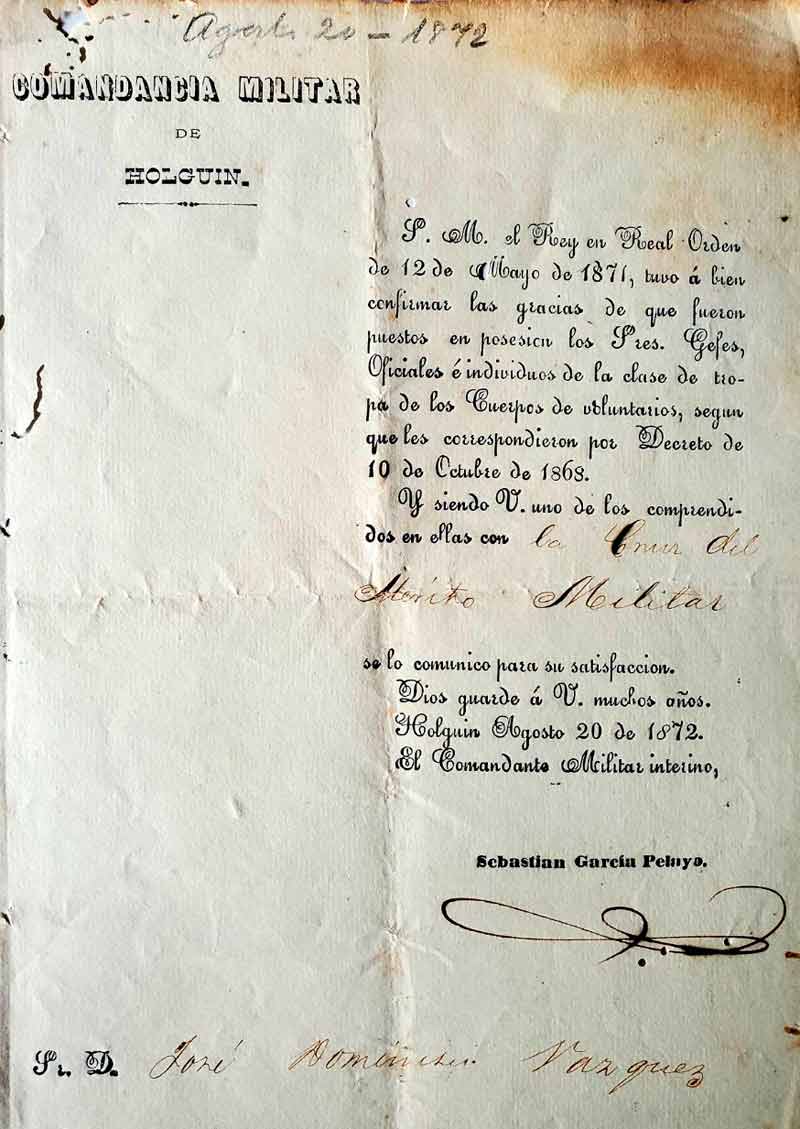 Agosto 20 - 1872
COMANDANCIA MILITAR
DE
HOLGUIN.
S. M. el Rey en Real Orden
de 12 de Mayo de 1871, tuvo á bien
confirmar las gracias de que fueron
puestos en posesion los Sres. Gefes,
Oficiales é individuos de la clase de tro-
pa de los Cuerpos de voluntarios, segun
que les correspondieron por Decreto de
10 de Octubre de 1868.
Y siendo V. uno de los comprendi-
dos en ellas con la Cruz del
Mérito Militar
se lo comunico para su satisfaccion.
Dios guarde á V. muchos años.
Holguin Agosto 20 de 1872.
El Comandante Militar interino,
Sebastian García Pelayo.
Sr. D. José Vazquez